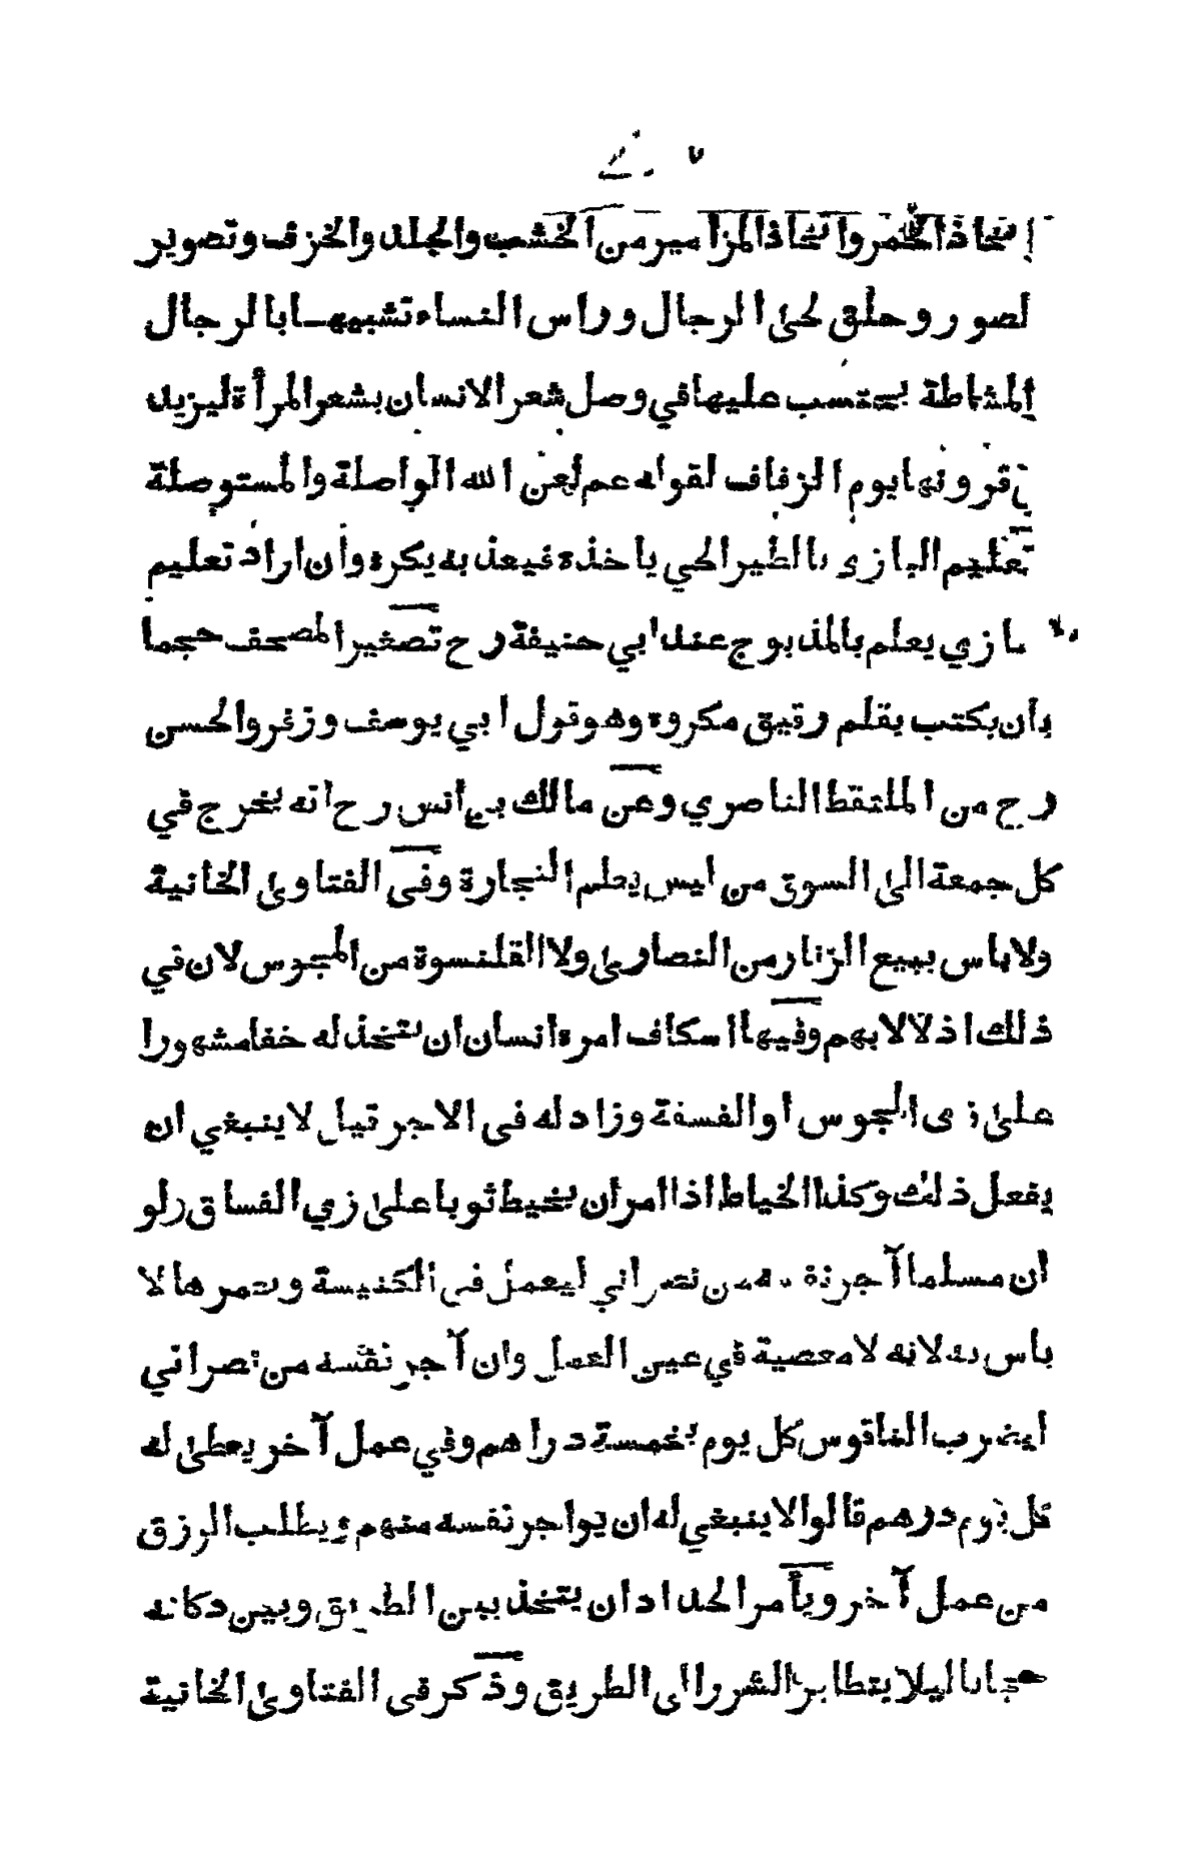 اتخاذ الخمر واتخاذ المزامير من الخشب والجلد والخزف وتصوير
لصور وحلق لحى الرجال وراس النساء تشبيها بالرجال
المشاطة يحتسب عليها في وصل شعر الانسان بشعر المرأة ليزيد
قرونها يوم الزفاف لقوله عم لعن الله الواصلة والمستوصلة
تعليم البازي بالطير الحي ياخذه فيعذ به يكره وان اراد تعليم
بازي يعلم بالمذبوح عند ابي حنيفة رح تصغير المصحف حجما
بان بكتب بقلم رقيق مكروه وهو قول ابي يوسف وزفر والحسن
رح من الملتقط الناصري وعن مالك بن انس رح انه يخرج في
كل جمعة الى السوق من ليس يعلم النجارة وفى الفتاوى الخانية
ولا باس ببيع الزنار من النصارى ولا القلنسوة من المجوس لان في
ذلك اذلالا بهم وفيها اسكاف امره انسان ان يتخذ له خفا مشهورا
على زى المجوس او الفسقة وزاد له فى الاجر قيل لا ينبغي ان
يفعل ذلك وكذا الخياط اذا امر ان يخيط ثوبا على زي الفساق ولو
ان مسلما آجر نفسه من نصراني ليعمل فى الكنيسة ويعمرها لا
باس به لانه لا معصية في عين العمل وان آجر نفسه من نصراني
ليضرب الناقوس كل يوم بخمسة دراهم وفي عمل آخر يعطى له
كل يوم درهم قالوا لا ينبغي له ان يواجر نفسه منهم ويطلب الرزق
من عمل آخر ويأمر الحداد ان يتخذ بين الطريق وبين دكانه
حجابا ليلا يتطاير الشرر الى الطريق وذكر فى الفتاوى الخانية